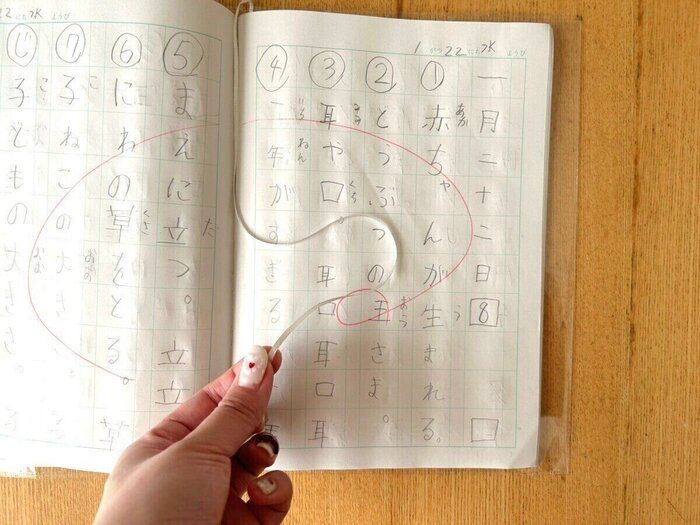 1がつ22にち水ようび
一月二十二日 8
①赤ちゃんが生まれる。
あか う
②とうぶつの王さま。
おう
③耳や口 耳口耳口耳
みみ くち
④一年がすぎる
いち ねん
22にち水ようび
⑤まえに立つ。立立
た
⑥にわの草をとる。草
くさ
⑦子ねこの大き
こ おお
子どもの大きさ。
こ おお